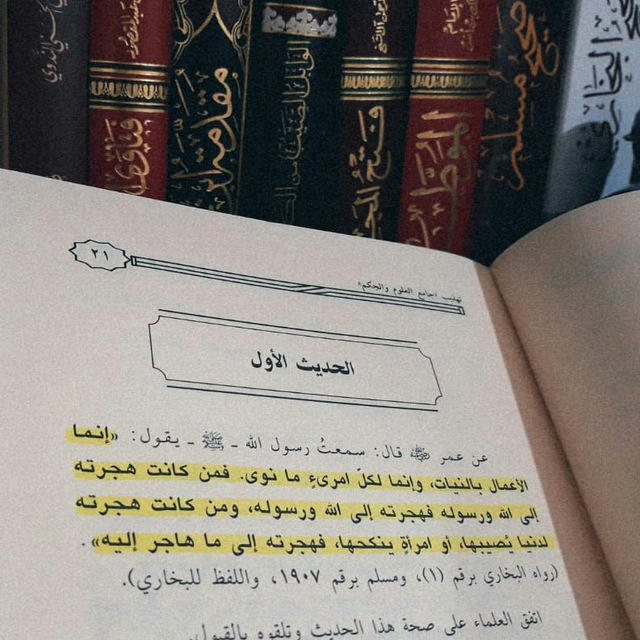 صحيح البخاري
صحيح مسلم
الموطأ
فتح
مقدمة
فتاوى
٢١
تهذيب «جامع العلوم والحكم»
الحديث الأول
عن عمر رضي الله عنه قال: سمعتُ رسول الله ـ ﷺ ـ يقول: «إنما
الأعمال بالنيات، وإنما لكلّ امرىءٍ ما نوى. فمن كانت هجرته
إلى الله ورسوله فهجرته إلى الله ورسوله، ومن كانت هجرته
لدنيا يُصيبها، أو امرأةٍ ينكحها، فهجرته إلى ما هاجر إليه».
(رواه البخاري برقم (١)، ومسلم برقم ١٩٠٧، واللفظ للبخاري).
اتفق العلماء على صحة هذا الحديث وتلقوه بالقبول.